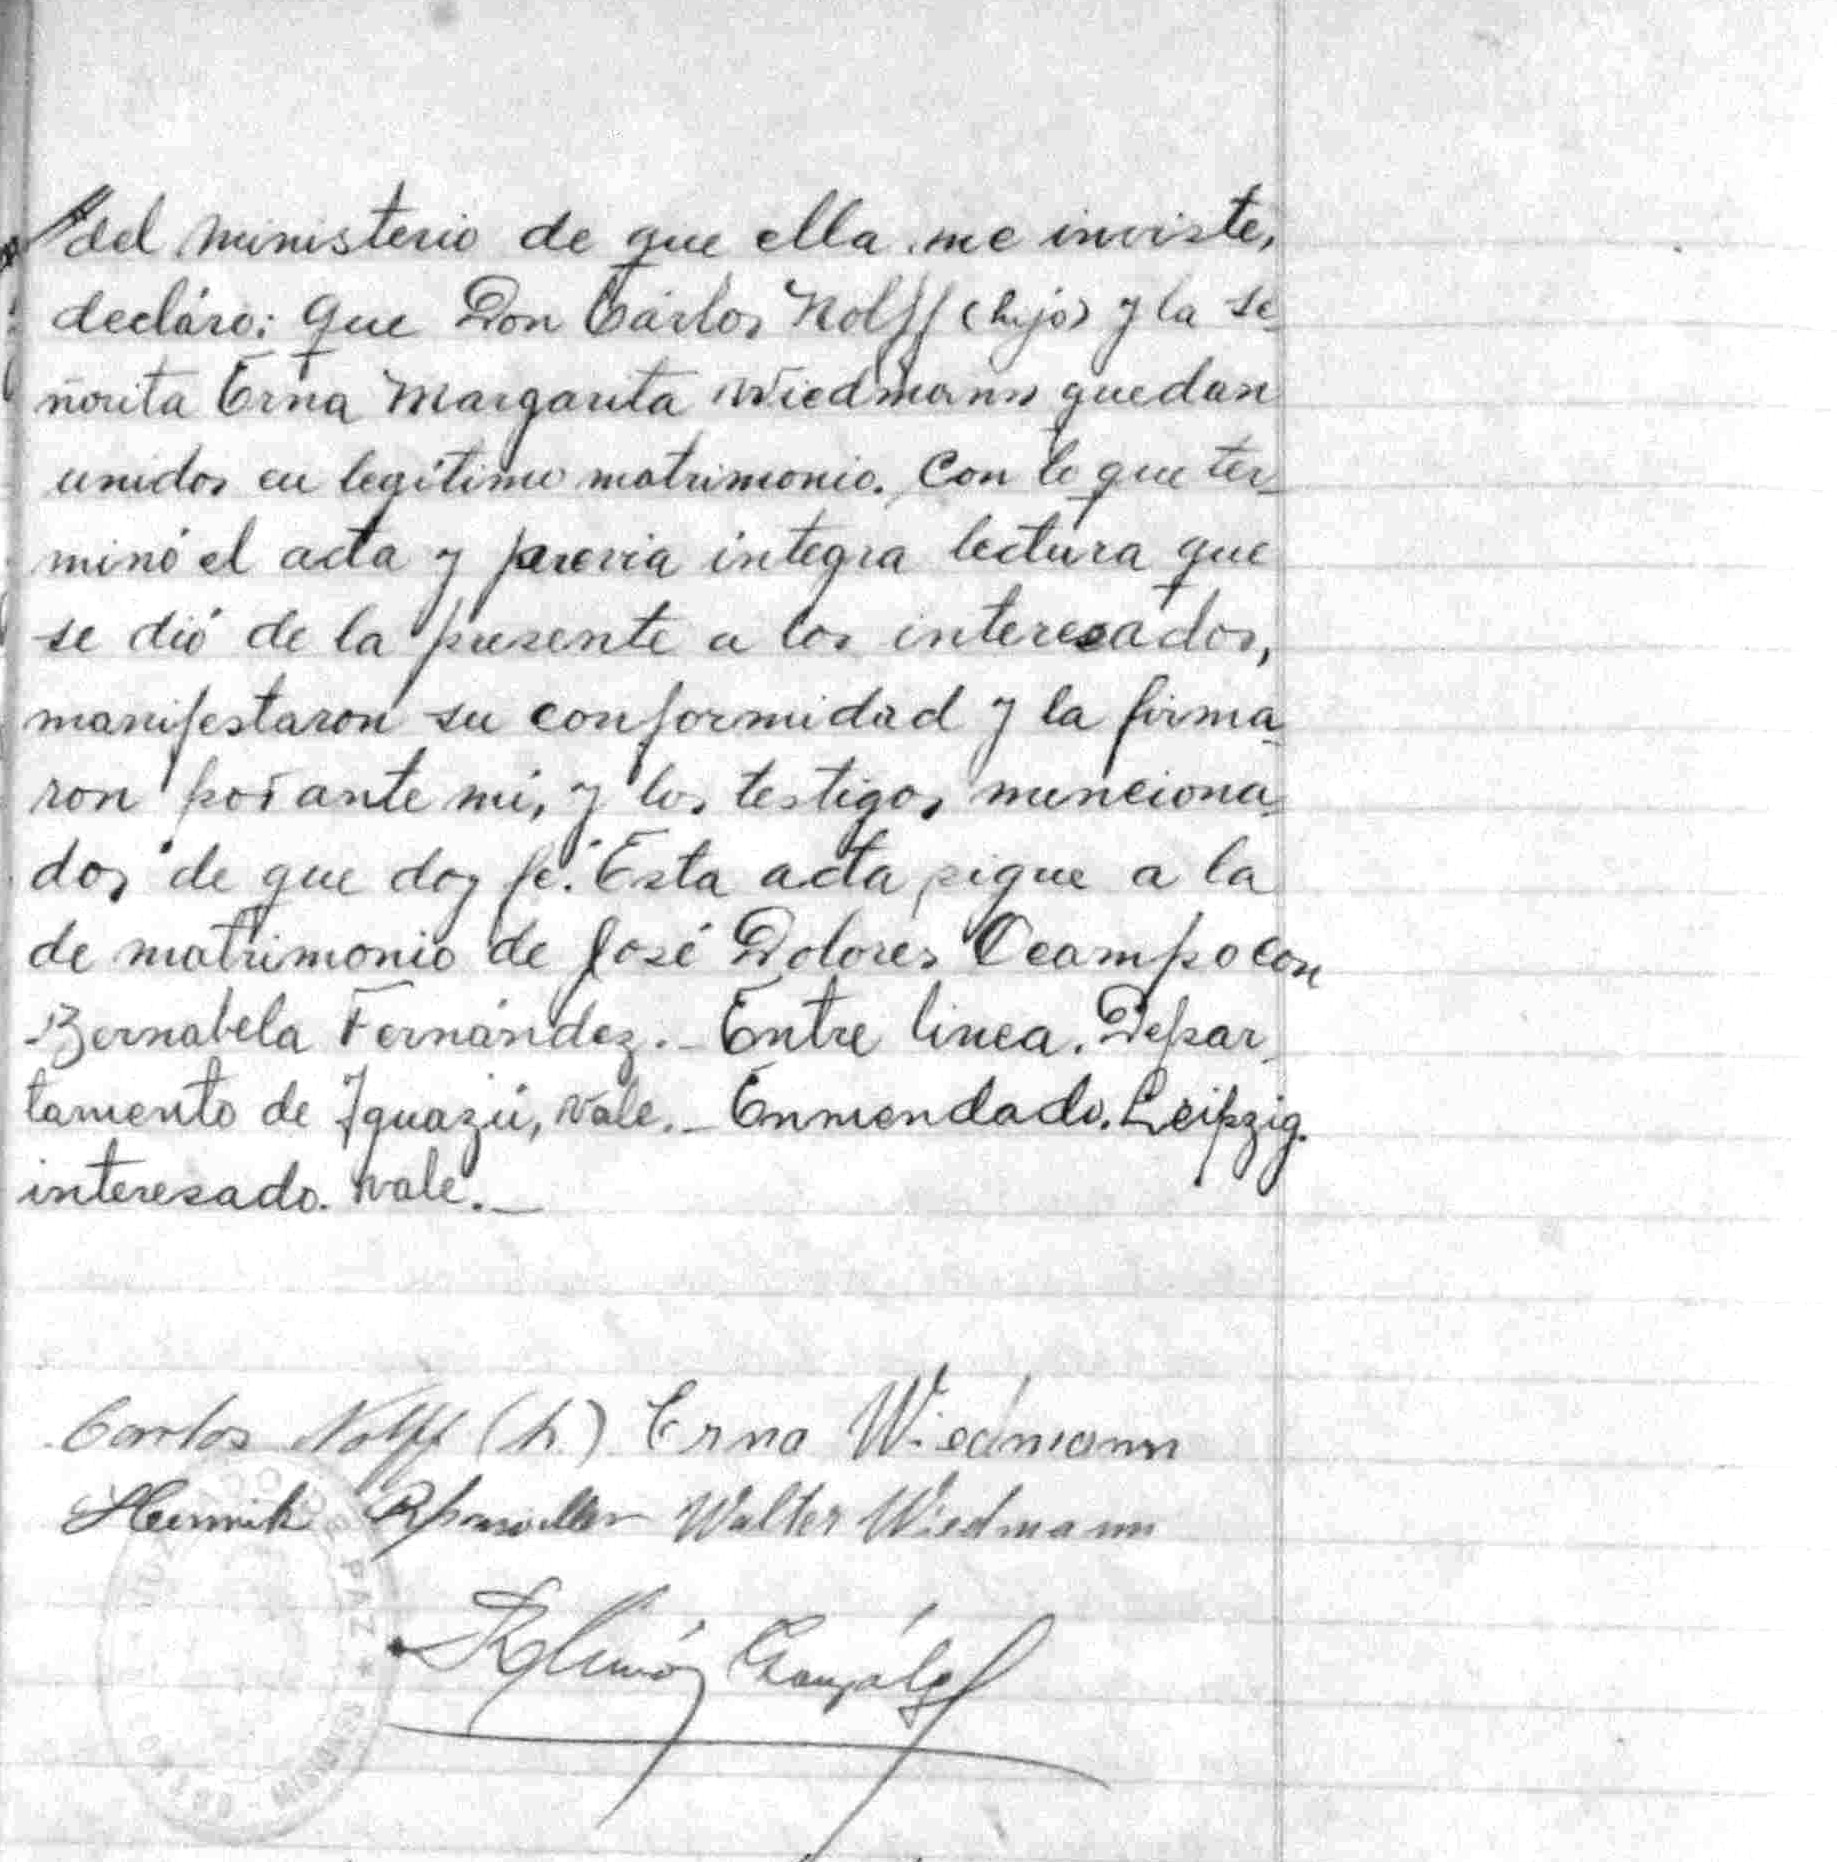 del ministerio de que ella me inviste,
decláro: Que Don Cárlos Nolff (hijo) y la se-
ñorita Erna Margarita Wiedmann quedan
unidos en legítimo matrimonio. Con lo que ter-
minó el acta y previa integra lectura que
se dió de la presente a los interesados,
manifestaron su conformidad y la firma-
ron por ante mi, y los testigos menciona-
dos de que doy fé. Esta acta sigue a la
de matrimonio de José Dolores Ocampo con
Bernabela Fernández.- Entre linea. Depar-
tamento de Iguazú, vale.- Enmendado. Leipzig.
interesado. vale.-
Carlos Nolff (h.) Erna Wiedmann
Walter Wiedmann
González
JUZGADO DE PAZ * MISIONES